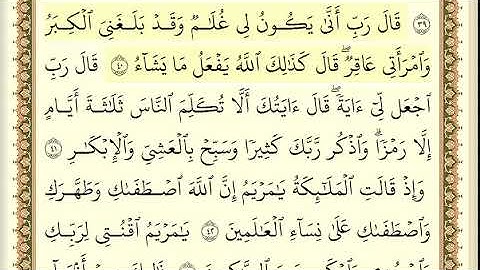 ٣٩ قَالَ رَبِّ أَنَّىٰ يَكُونُ لِى غُلَـٰمٌ وَقَدْ بَلَغَنِىَ ٱلْكِبَرُ
وَٱمْرَأَتِى عَاقِرٌ ۖ قَالَ كَذَٰلِكَ ٱللَّهُ يَفْعَلُ مَا يَشَآءُ ٤٠ قَالَ رَبِّ
ٱجْعَل لِّىٓ ءَايَةً ۖ قَالَ ءَايَتُكَ أَلَّا تُكَلِّمَ ٱلنَّاسَ ثَلَـٰثَةَ أَيَّامٍ
إِلَّا رَمْزًا ۗ وَٱذْكُر رَّبَّكَ كَثِيرًا وَسَبِّحْ بِٱلْعَشِىِّ وَٱلْإِبْكَـٰرِ ٤١
وَإِذْ قَالَتِ ٱلْمَلَـٰٓئِكَةُ يَـٰمَرْيَمُ إِنَّ ٱللَّهَ ٱصْطَفَىٰكِ وَطَهَّرَكِ
وَٱصْطَفَىٰكِ عَلَىٰ نِسَآءِ ٱلْعَـٰلَمِينَ ٤٢ يَـٰمَرْيَمُ ٱقْنُتِى لِرَبِّكِ